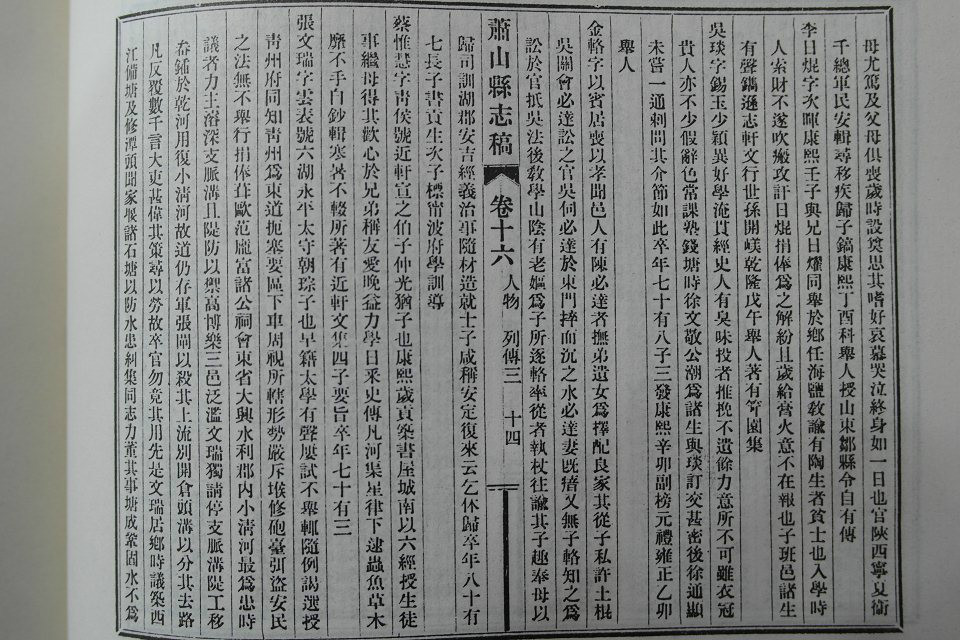 母尤篤及父母俱喪歲時設奠思其嗜好哀慕哭泣終身如一日也官陝西寧夏衛
千總軍民安輯尋移疾歸子鎬康熙丁酉科舉人授山東鄒縣令自有傳
李日焜字次暉康熙壬子與兄日燿同舉於鄉任海鹽教諭有陶生者貧士也入學時
人索財不遂吹瘢攻訐日焜捐俸為之解紛且歲給膏火意不在報也子班邑諸生
有聲鐫遜志軒文行世孫開嵄乾隆戊午舉人著有笴園集
吳琰字錫玉少穎異好學淹貫經史人有臭味投者推挽不遺餘力意所不可雖衣冠
貴人亦不少假辭色常課塾錢塘時徐文敬公潮為諸生與琰訂交甚密後徐通顯
未嘗一通剌問其介節如此卒年七十有八子三發康熙辛卯副榜元禮雍正乙卯
舉人
金輅字以賓居喪以孝聞邑人有陳必達者撫弟遺女為擇配良家其從子私許土棍
吳關會必達訟之官吳伺必達於東門捽而沉之水必達妻既瘖又無子輅知之為
訟於官抵吳法後教學山陰有老嫗為子所逐輅率從者執杖往諭其子趣奉母以
蕭山縣志稿 卷十六 人物 列傳三 十四
歸司訓湖郡安吉經義治事隨材造就士子咸稱安定復來云乞休歸卒年八十有
七長子書貢生次子標甯波府學訓導
蔡惟慧字靑侯號近軒宣之伯子仲光猶子也康熙歲貢築書屋城南以六經授生徒
事繼母得其歡心於兄弟稱友愛晚益力學日釆史傳凡河渠星律下逮蟲魚草木
靡不手自鈔輯寒暑不輟所著有近軒文集四子要旨卒年七十有三
張文瑞字雲表號六湖永平太守朝琮子也早籍太學有聲屢試不舉輒隨例謁選授
靑州府同知靑州為東道扼塞要區下車周視所轄形勢嚴斥堠修砲臺弭盜安民
之法無不舉行捐俸葺歐范龐富諸公祠會東省大興水利郡內小淸河最為患時
議者力主濬深支脈溝且隄防以禦高博樂三邑泛濫文瑞獨請停支脈溝隄工移
畚鍤於乾河用復小淸河故道仍存軍張閘以殺其上流別開倉頭溝以分其去路
凡反覆數千言大吏甚偉其策尋以勞故卒官勿竟其用先是文瑞居鄉時議築西
江備塘及修潭頭聞家堰諸石塘以防水患糾集同志力董其事塘成鞏固水不為